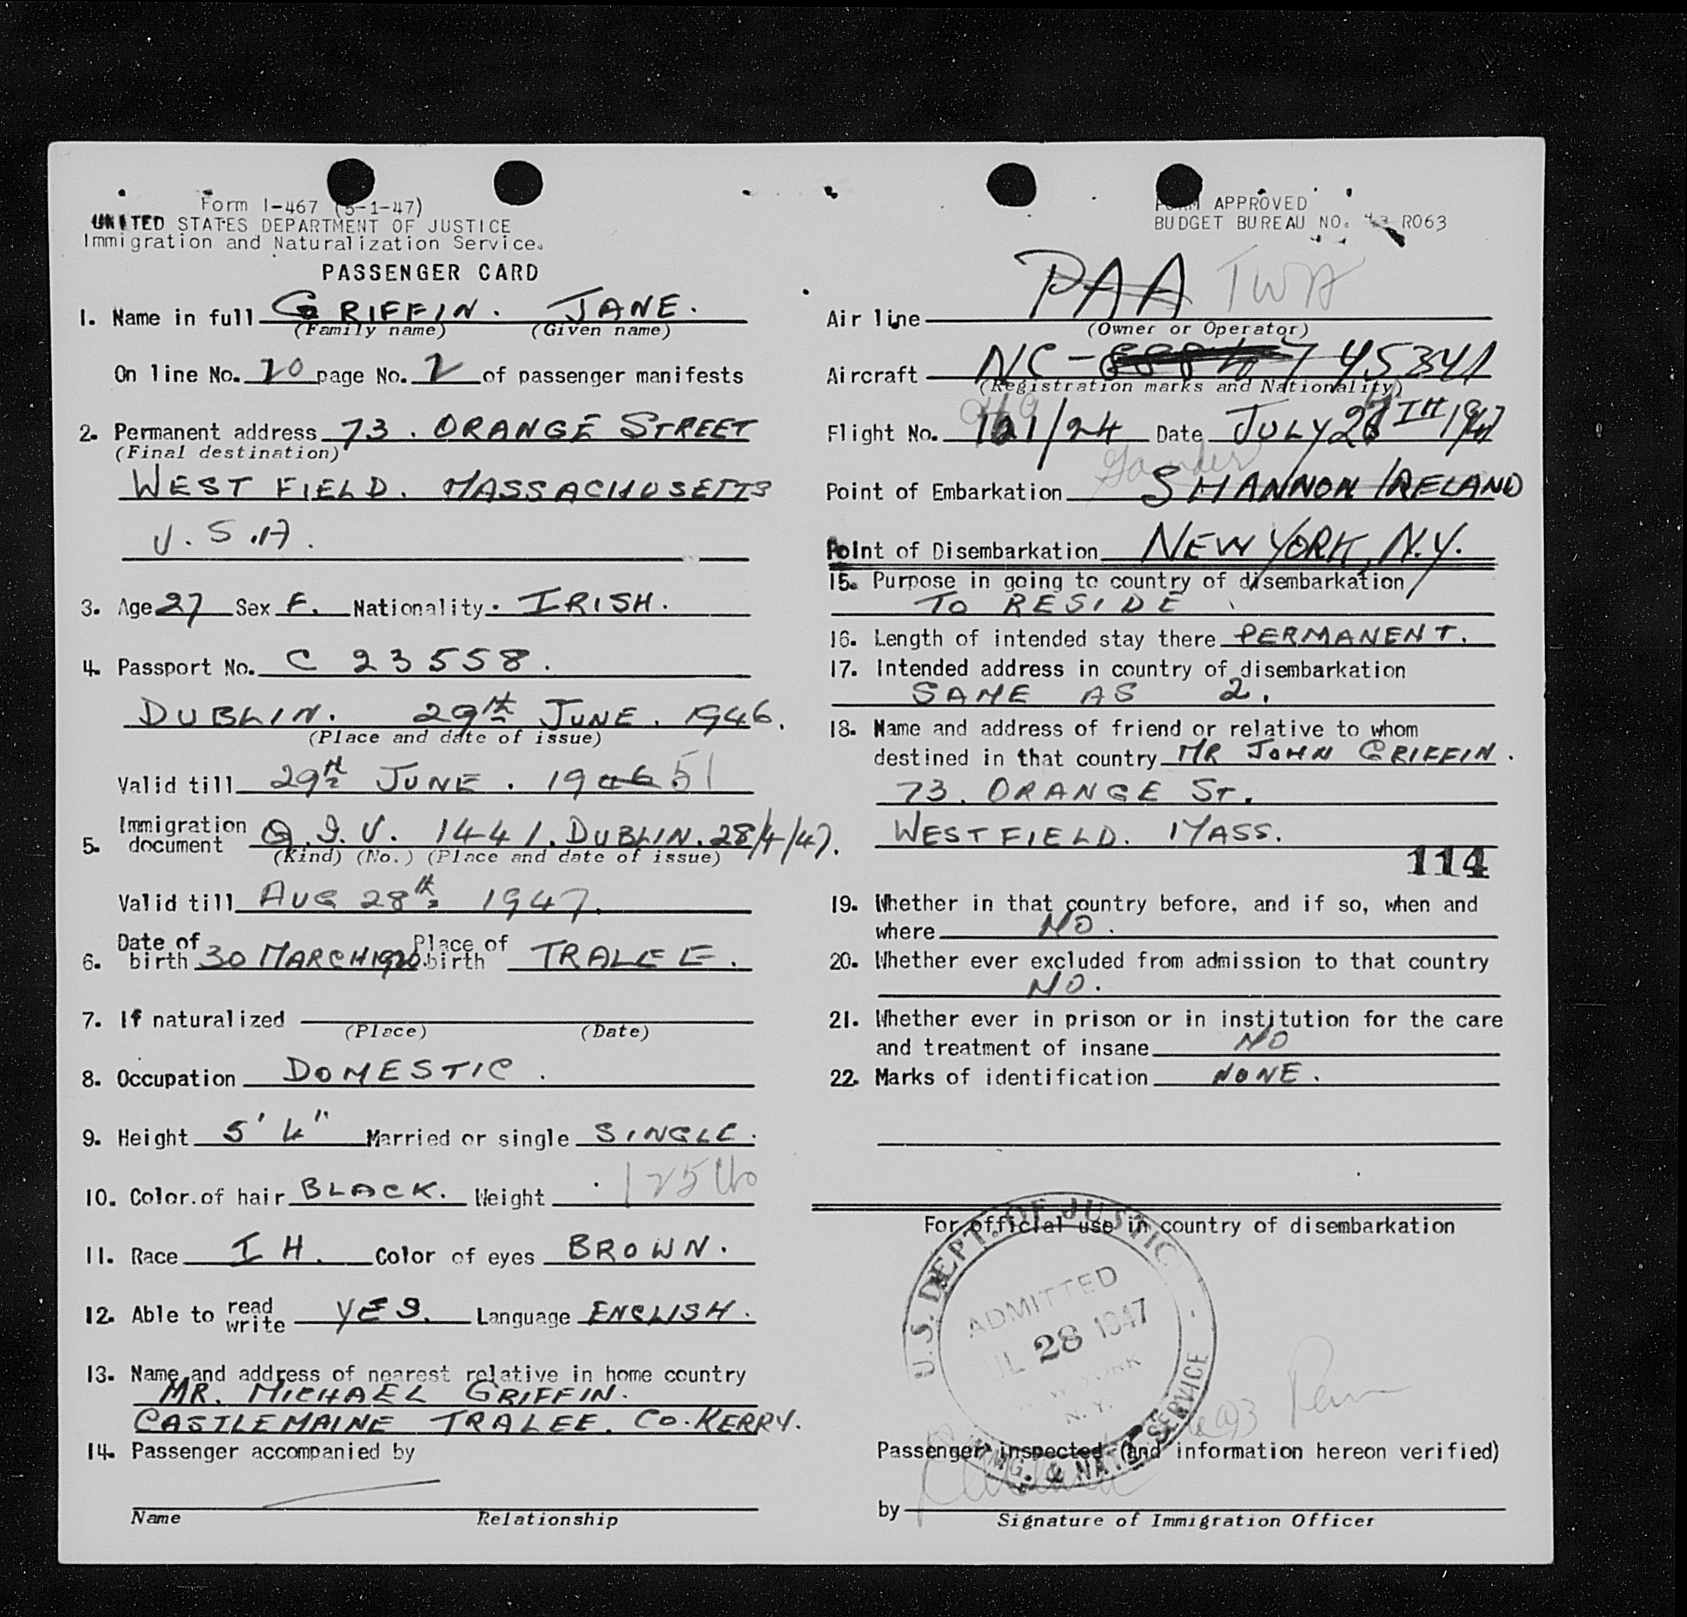 Form I-467 (5-1-47)
UNITED STATES DEPARTMENT OF JUSTICE
Immigration and Naturalization Service.
PASSENGER CARD
1. Name in full GRIFFIN. JANE.
(Family name) (Given name)
On line No. 20 page No. 2 of passenger manifests
2. Permanent address 73. ORANGE STREET
(Final destination)
WEST FIELD. MASSACHUSETTS
U.S.A.
3. Age 27 Sex F. Nationality. IRISH.
4. Passport No. C 23558.
DUBLIN. 29th JUNE. 1946.
(Place and date of issue)
Valid till 29th JUNE. 1946 51
5. Immigration document Q.I.V. 1441. DUBLIN. 28/4/47.
(Kind) (No.) (Place and date of issue)
Valid till AUG 28th 1947.
6. Date of birth 30 MARCH 1920. Place of birth TRALEE.
7. If naturalized
(Place) (Date)
8. Occupation DOMESTIC.
9. Height 5' 4" Married or single SINGLE.
10. Color of hair BLACK. Weight 125 lb
11. Race I H. Color of eyes BROWN.
12. Able to read write YES. Language ENGLISH.
13. Name and address of nearest relative in home country
MR. MICHAEL GRIFFIN.
CASTLEMAINE TRALEE. CO. KERRY.
14. Passenger accompanied by
Name Relationship
FORM APPROVED
BUDGET BUREAU NO. 43-R063
Air line PAA TWA
(Owner or Operator)
Aircraft NC- 45341
(Registration marks and Nationality)
Flight No. /24 Date JULY TH 1947
Gander
Point of Embarkation SHANNON IRELAND
Point of Disembarkation NEW YORK, N.Y.
15. Purpose in going to country of disembarkation
TO RESIDE
16. Length of intended stay there PERMANENT.
17. Intended address in country of disembarkation
SAME AS 2.
18. Name and address of friend or relative to whom
destined in that country MR JOHN GRIFFIN.
73. ORANGE ST.
WESTFIELD. MASS.
114
19. Whether in that country before, and if so, when and
where NO.
20. Whether ever excluded from admission to that country
NO.
21. Whether ever in prison or in institution for the care
and treatment of insane NO
22. Marks of identification NONE.
For official use in country of disembarkation
U.S. DEPT. OF JUSTICE
ADMITTED
JUL 28 1947
NEW YORK
N.Y.
IMMG. & NAT'Z SERVICE
Passenger inspected (and information hereon verified)
by
Signature of Immigration Officer